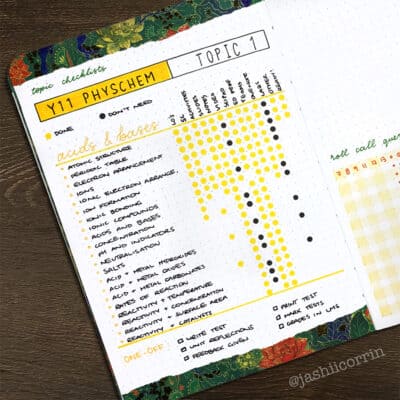 topic checklists
Y11 PHYSCHEM
TOPIC 1
DONE
DON'T NEED
acids & bases
ATOMIC STRUCTURE
PERIODIC TABLE
ELECTRON ARRANGEMENT
IONS
IONIC ELECTRON ARRANGE.
ION FORMATION
IONIC BONDING
IONIC COMPOUNDS
ACIDS AND BASES
CONCENTRATION
PH AND INDICATORS
NEUTRALISATION
SALTS
ACID + METAL HYDROXIDES
ACID + METAL OXIDES
ACID + METAL CARBONATES
RATES OF REACTION
REACTIVITY + TEMPERATURE
REACTIVITY + CONCENTRATION
REACTIVITY + SURFACE AREA
REACTIVITY + CATALYSTS
ONE-OFF
WRITE TEST
UNIT REFLECTIONS
FEEDBACK GIVEN
PRINT TEST
MARK TESTS
GRADES IN LMS
roll call
@jashiicorrin